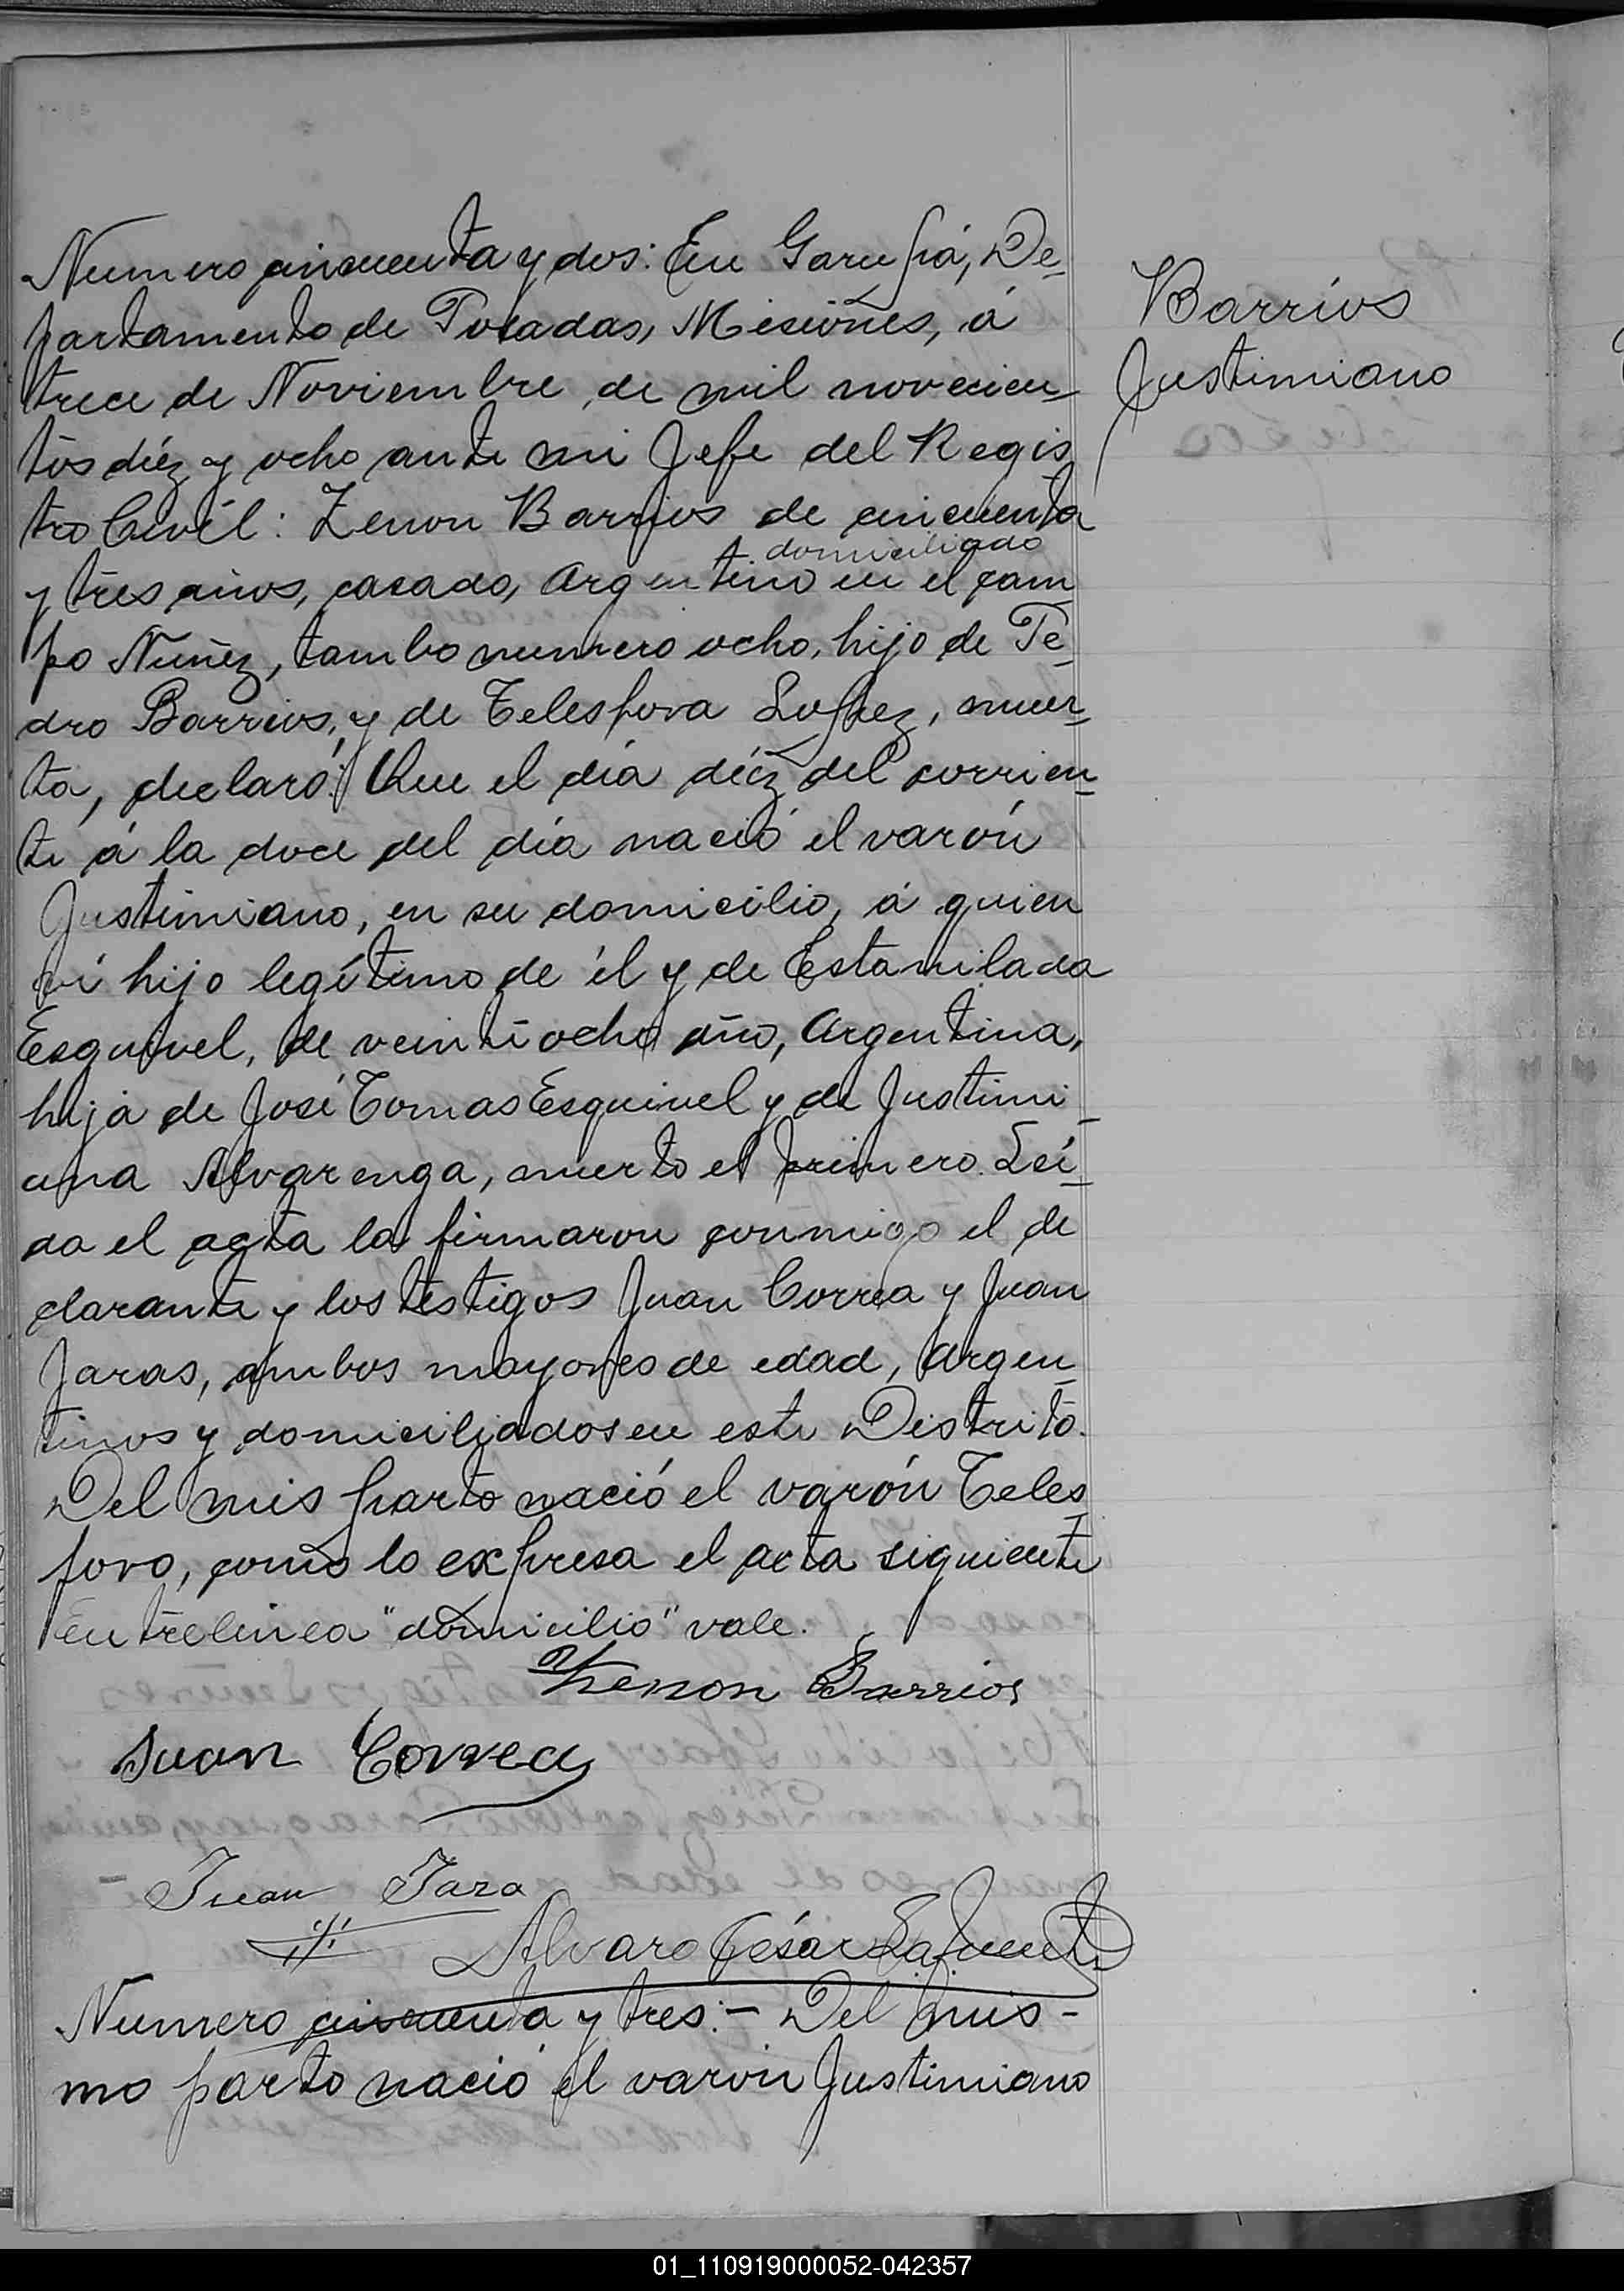 Numero cincuenta y dos: En Garupá, De-
partamento de Posadas, Misiones, á
trece de Noviembre de mil novecien-
tos diéz y ocho ante mi Jefe del Regis
tro Civíl: Zenon Barrios de cincuenta
domiciliado
y tres años, casado, Argentino en el cam
po Nuñez, tambo numero ocho, hijo de Pe-
dro Barrios, y de Telesfora Lopez, muer-
ta, declaró: Que el día diéz del corrien-
te á la doce del día nació el varón
Justiniano, en su domicilio, á quien
ví hijo legítimo de él y de Estanilada
Esquivel, de veinti ocho año, Argentina,
hija de José Tomas Esquivel y de Justini-
ana Alvarenga, muerto el primero. Leí-
da el acta la firmaron conmigo el de
clarante y los testigos Juan Correa y Juan
Jaras, ambos mayores de edad, Argen-
tinos y domiciliados en este Distrito.
Del mis parto nació el varón Teles
foro, como lo expresa el acta siguiente
Entrelinea "domicilio" vale.
Zenon Barrios
Juan Correa
Juan Jara
Alvaro César Lafuente
Numero cincuenta y tres:- Del mis-
mo parto nació el varon Justiniano
Barrios
Justiniano
01_110919000052-042357